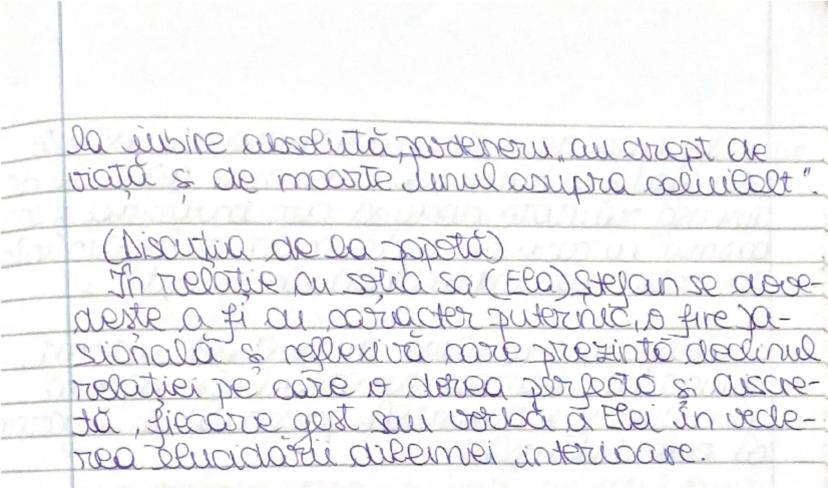 la iubire absolută, partenerii „au drept de
viață ș de moarte unul asupra celuilalt".
(Discuția de la popotă)
În relație cu soția sa (Ela) Ștefan se dove-
dește a fi cu caracter puternic, o fire pa-
sională ș reflexivă care prezintă declinul
relației pe care o dorea perfectă ș discre-
tă, fiecare gest sau vorbă a Elei în vede-
rea elucidării dilemei interioare.